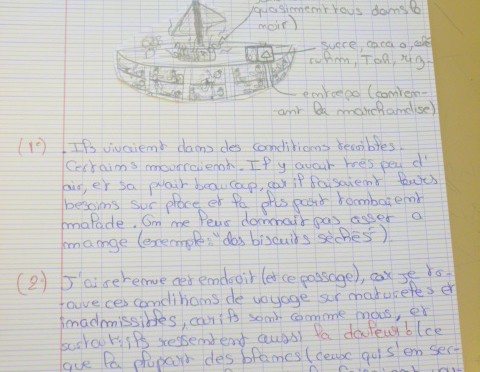 quasiment tous dans le
noir)
sucre, cacao, café
rhum, Tab, rig-
entrepo (conten-
ant la marchandise)
(1°) . Ils vivaient dans des conditions terribles.
Certains mourraient. Il y avait très peu d'
air, et sa puait beaucoup, car il faisaient leurs
besoins sur place et la plus part tombaient
malade. On ne leur donnait pas asser a
mange (exemple: "des biscuits séchés")
(2°) J'ai retenue cet endroit (et ce passage), car je tr-
ouve ces conditions de voyage sur naturelles et
inadmissibles, car ils sont comme nous, et
surtout ils ressentent aussi la douleur! (ce
que la plupart des blancs (ceux qui s'en ser-